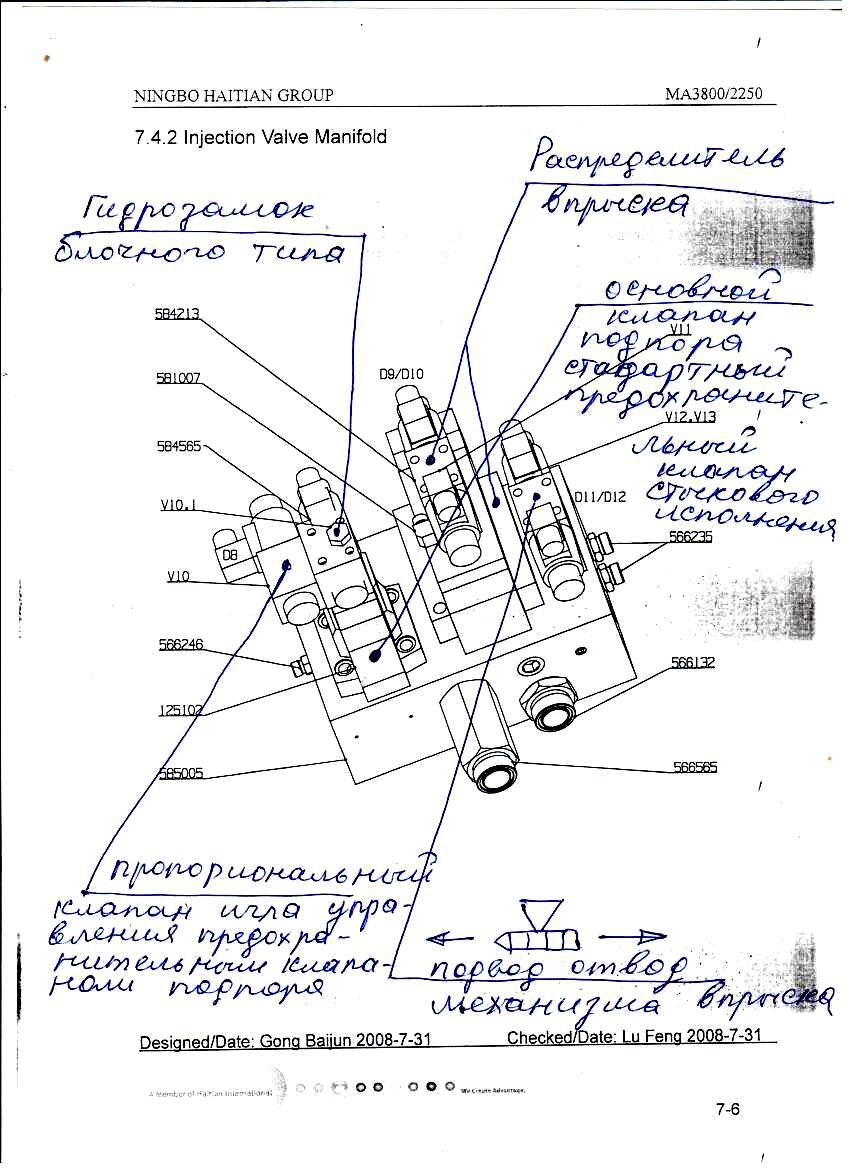 NINGBO HAITIAN GROUP MA3800/2250
7.4.2 Injection Valve Manifold
Распределитель
впрыска
Гидрозамок
блочного типа
основной
клапан
подпора
стандартный
предохраните-
льный
клапан
стыкового
исполнения
584213
V11
581007
D9/D10
V12.V13
584565
V10.1
D11/D12
566235
D8
V10
566246
566132
125102
585005
566565
пропорциональный
клапан игла упра-
вления предохра-
нительным клапа-
ном подпора
подвод отвод
механизма впрыска
Designed/Date: Gong Baijun 2008-7-31 Checked/Date: Lu Feng 2008-7-31
A Member of Haitian International We Create Advantage.
7-6